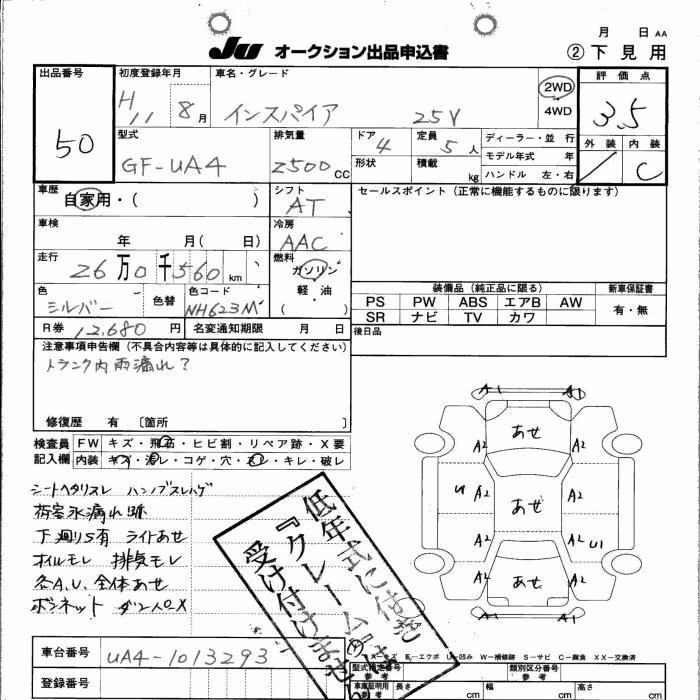 月 日 AA
JU オークション出品申込書
② 下見用
出品番号
50
初度登録年月
H11 8月
車名・グレード
インスパイア 25V
2WD
4WD
評価点
3.5
外装 内装
C
型式
GF-UA4
排気量
2500 CC
ドア
4
形状
定員
5人
積載
kg
ディーラー・並 行
モデル年式 年
ハンドル 左・右
車歴
自家用・( )
シフト
AT
セールスポイント(正常に機能するものに限ります)
車検
年 月( 日)
冷房
AAC
走行
26万0千560km
燃料
ガソリン
軽・油
( )
色
シルバー
色替
色コード
NH623M
装備品(純正品に限る)
PS PW ABS エアB AW
SR ナビ TV カワ
新車保証書
有・無
R券 12,680円
名変通知期限 月 日
後日品
注意事項申告欄(不具合内容等は具体的に記入してください)
トランク内雨漏れ?
修復歴 有 〔箇所 〕
検査員記入欄
FW キズ・飛石・ヒビ割・リペア跡・X要
内装 キズ・汚レ・コゲ・穴・スレ・キレ・破レ
シートヘタリスレ ハンドブスレハゲ
荷室水漏れ跡
下廻りS有 ライトあせ
オイルモレ 排気モレ
各A.U、全体あせ
ボンネット ダンパーX
A1 A1
あせ
A2 A2
U A2 あせ A2
A2 A2 U1
A2 あせ A2
A1 A1
低年式
『クレーム
受け付け
A…キズ E…エクボ U…凹み W…補修跡 S…サビ C…腐食 XX…交換済
車台番号
UA4-1013293
登録番号
型式指定番号
参考
類別区分番号
参考
車庫証明用
参考
長さ cm
幅 cm
高さ cm